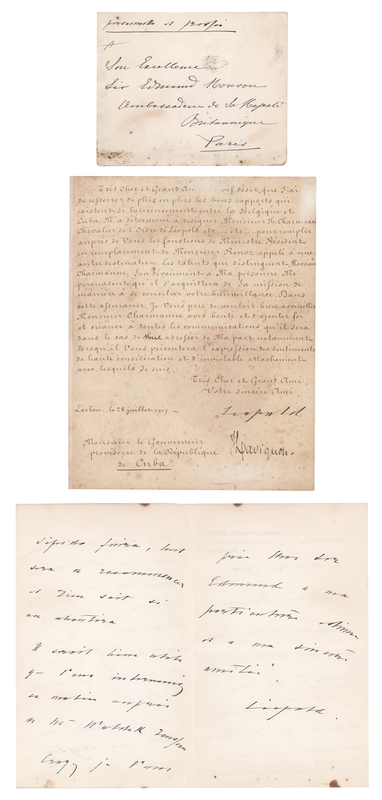 personnelle et
A
Son Excellence
Sir Edmund Monson
Ambassadeur de Sa Majesté
Britannique
Paris
Très Cher et Grand Ami, vif désir que J'ai
de resserrer de plus en plus les bons rapports qui
existent si heureusement entre la Belgique et
Cuba M'a déterminé à désigner Monsieur Ch. Charmanne
Chevalier de l'Ordre de Léopold etc. etc. pour remplir
auprès de Vous les fonctions de Ministre Résident
en remplacement de Monsieur Renoz appelé à une
autre destination. Les talents qui distinguent Monsieur
Charmanne, Son dévouement à Ma personne Me
persuadent qu'il s'acquittera de Sa mission de
manière à se concilier votre bienveillance. Dans
cette assurance, Je Vous prie de vouloir bien accueillir
Monsieur Charmanne avec bonté et d'ajouter foi
et créance à toutes les communications qu'il sera
dans le cas de Vous adresser de Ma part notamment
lorsqu'il Vous présentera l'expression des sentiments
de haute considération et d'inviolable attachement
avec lesquels Je suis,
Très Cher et Grand Ami,
Votre sincère Ami,
Laeken, le 28 juillet 1907
Léopold
Monsieur le Gouverneur
provisoire de la République
de Cuba
Davignon
finira, tout
sera à recommencer
et Dieu sait si
on aboutira
Il serait bien utile
que Vous
ce matin auprès
de Mr Waldeck
Croyez je Vous
prie mon Sir
Edmund à ma
particulière estime
et à ma sincère
amitié
Léopold